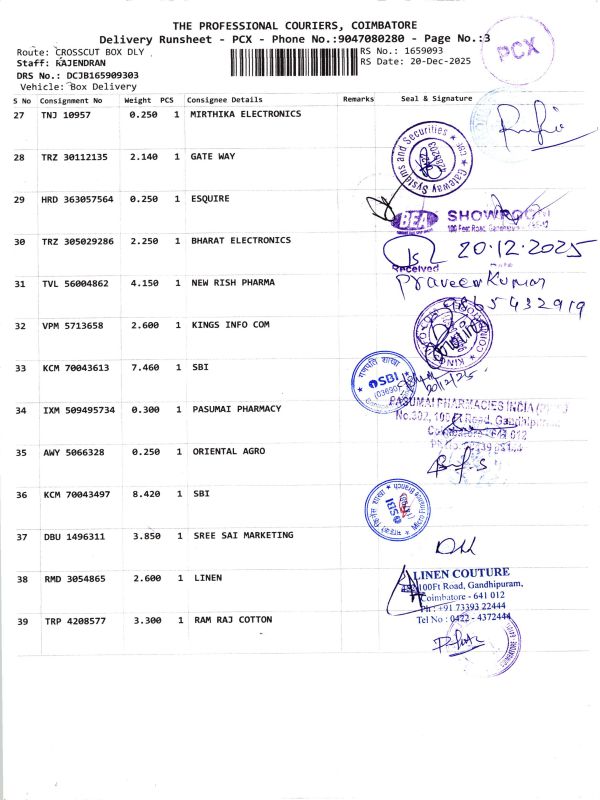 THE PROFESSIONAL COURIERS, COIMBATORE
Delivery Runsheet - PCX - Phone No.:9047080280 - Page No.:3
PCX
Route: CROSSCUT BOX DLY
RS No.: 1659093
Staff: KAJENDRAN
RS Date: 20-Dec-2025
DRS No.: DCJB165909303
Vehicle: Box Delivery
S No Consignment No Weight PCS Consignee Details Remarks Seal & Signature
27 TNJ 10957 0.250 1 MIRTHIKA ELECTRONICS
28 TRZ 30112135 2.140 1 GATE WAY
Gateway Systems and Securities
29 HRD 363057564 0.250 1 ESQUIRE
BEA SHOWROOM
30 TRZ 305029286 2.250 1 BHARAT ELECTRONICS
20.12.2025
Received
31 TVL 56004862 4.150 1 NEW RISH PHARMA
Praveen Kumar
9865432919
32 VPM 5713658 2.600 1 KINGS INFO COM
33 KCM 70043613 7.460 1 SBI
गणपति शाखा
SBI
34 IXM 509495734 0.300 1 PASUMAI PHARMACY
PASUMAI PHARMACIES INDIA
Coimbatore - 641 012
35 AWY 5066328 0.250 1 ORIENTAL AGRO
36 KCM 70043497 8.420 1 SBI
SBI
Micro Finance Branch
37 DBU 1496311 3.850 1 SREE SAI MARKETING
38 RMD 3054865 2.600 1 LINEN
LINEN COUTURE
100Ft Road, Gandhipuram,
Coimbatore - 641 012
Ph : +91 73393 22444
Tel No : 0422 - 4372444
39 TRP 4208577 3.300 1 RAM RAJ COTTON